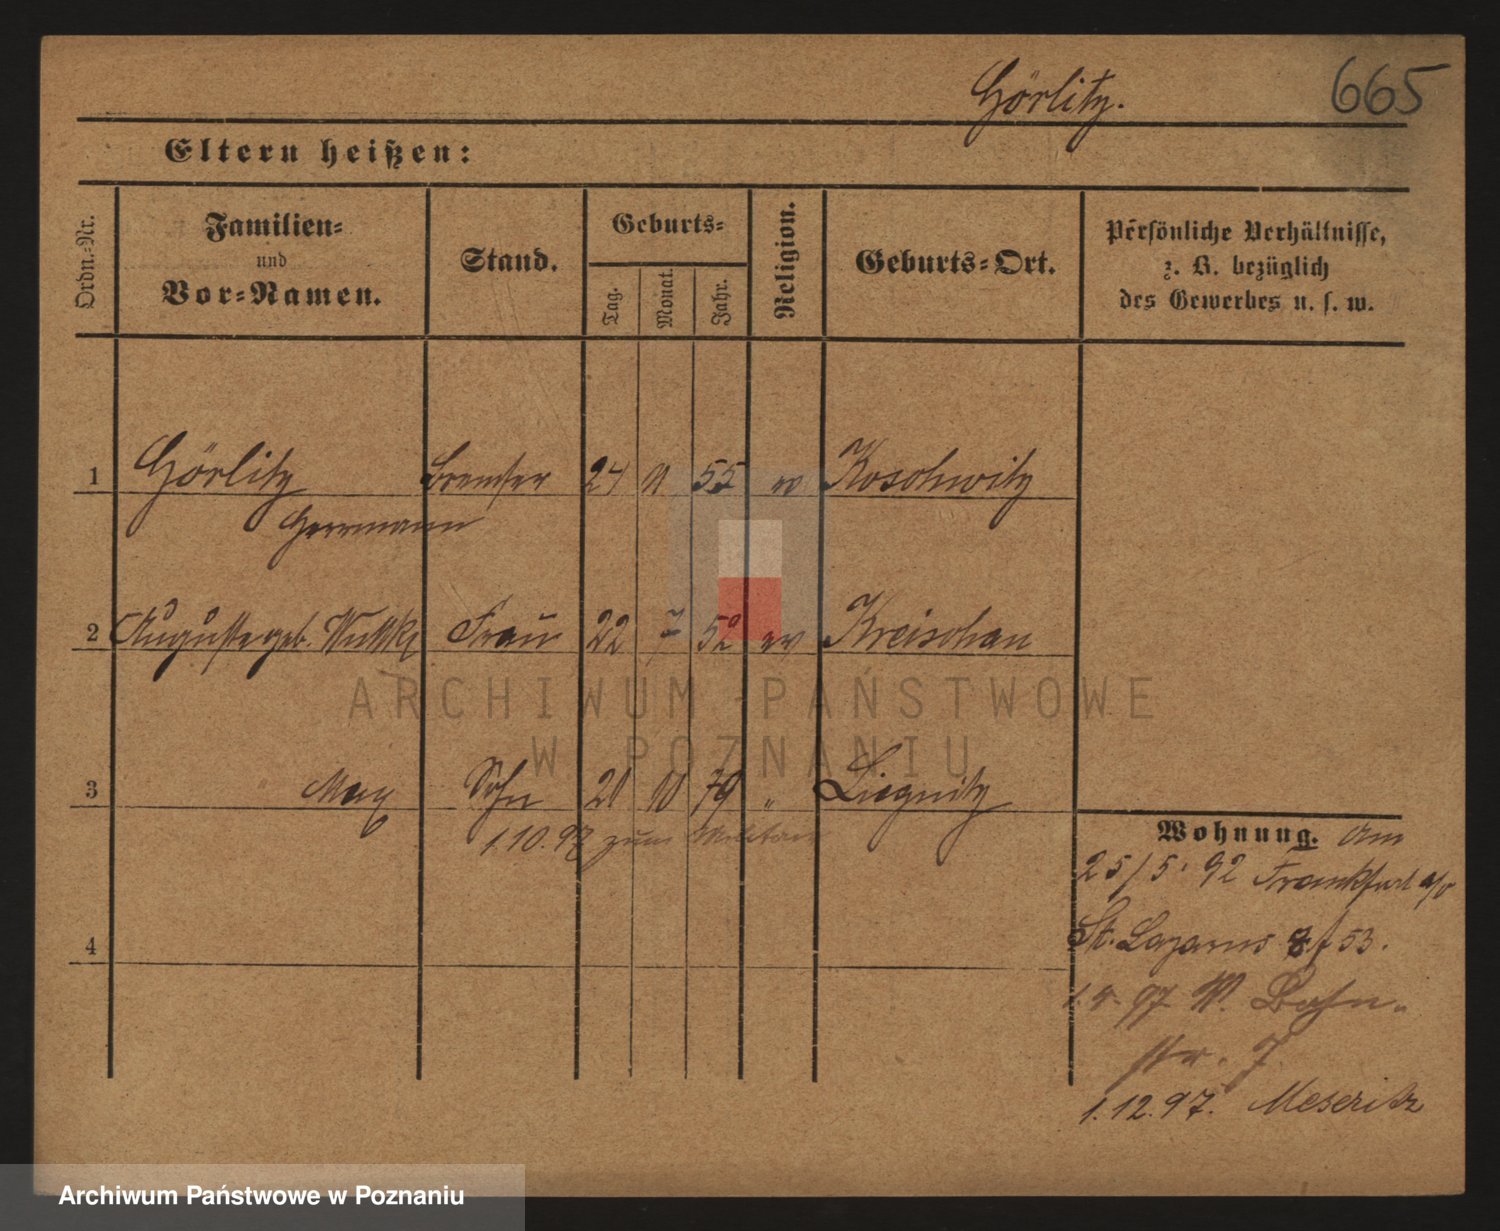 Görlitz. 665
Eltern heißen:
Ordn.-Nr.
Familien-
und
Vor-Namen.
Stand.
Geburts-
Tag.
Monat.
Jahr.
Religion.
Geburts-Ort.
Persönliche Verhältnisse,
z. B. bezüglich
des Gewerbes u. s. w.
1 Görlitz Bremser 24 11 55 ev Koschwitz
Herrmann
2 Auguste geb. Wuttke Frau 22 7 52 ev Kreischau
3 Max Sohn 21 10 79 " Liegnitz
1.10.97 zum Militär
4
Wohnung. Am
25/5. 92 Frankfurt a/o
St. Lazarus 53.
1.4.97 W. Bahn-
str. 7
1.12.97. Meseritz
ARCHIWUM PAŃSTWOWE
W POZNANIU
Archiwum Państwowe w Poznaniu